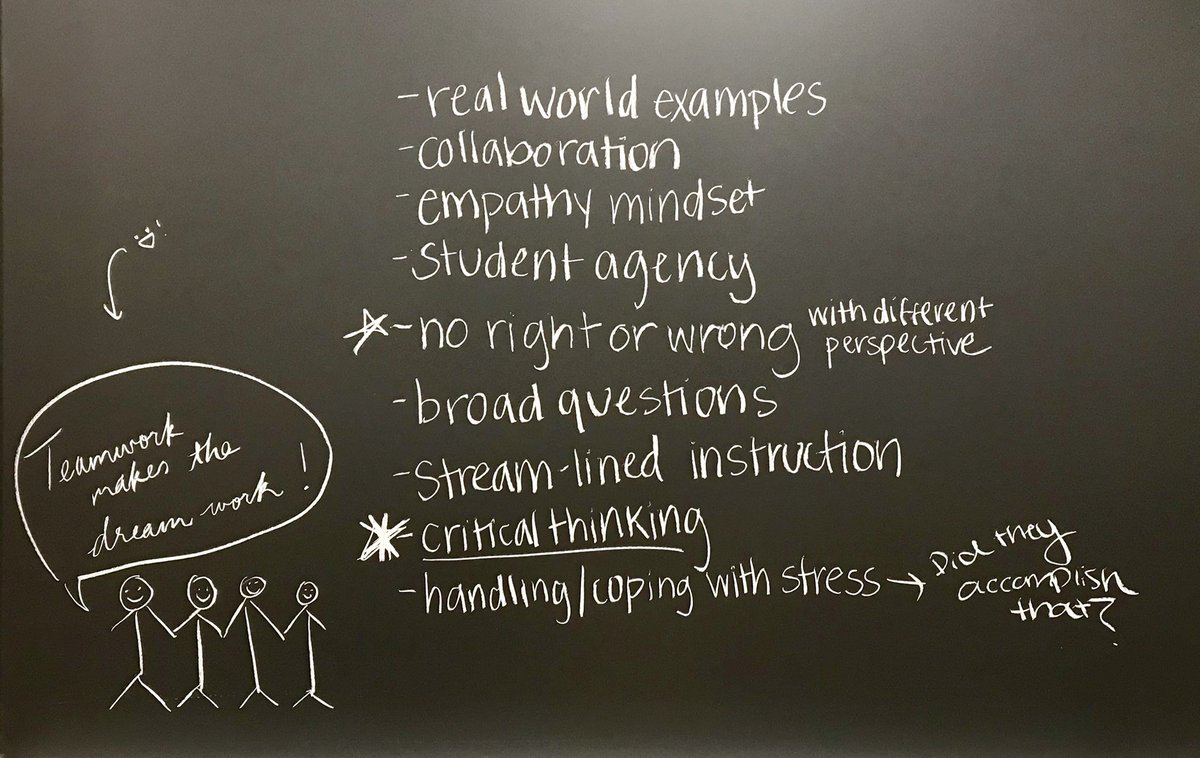 - real world examples
- collaboration
- empathy mindset
- student agency
- no right or wrong with different
perspective
- broad questions
- stream-lined instruction
- critical thinking
- handling/coping with stress → Did they
accomplish
that?
Teamwork
makes the
dream work!